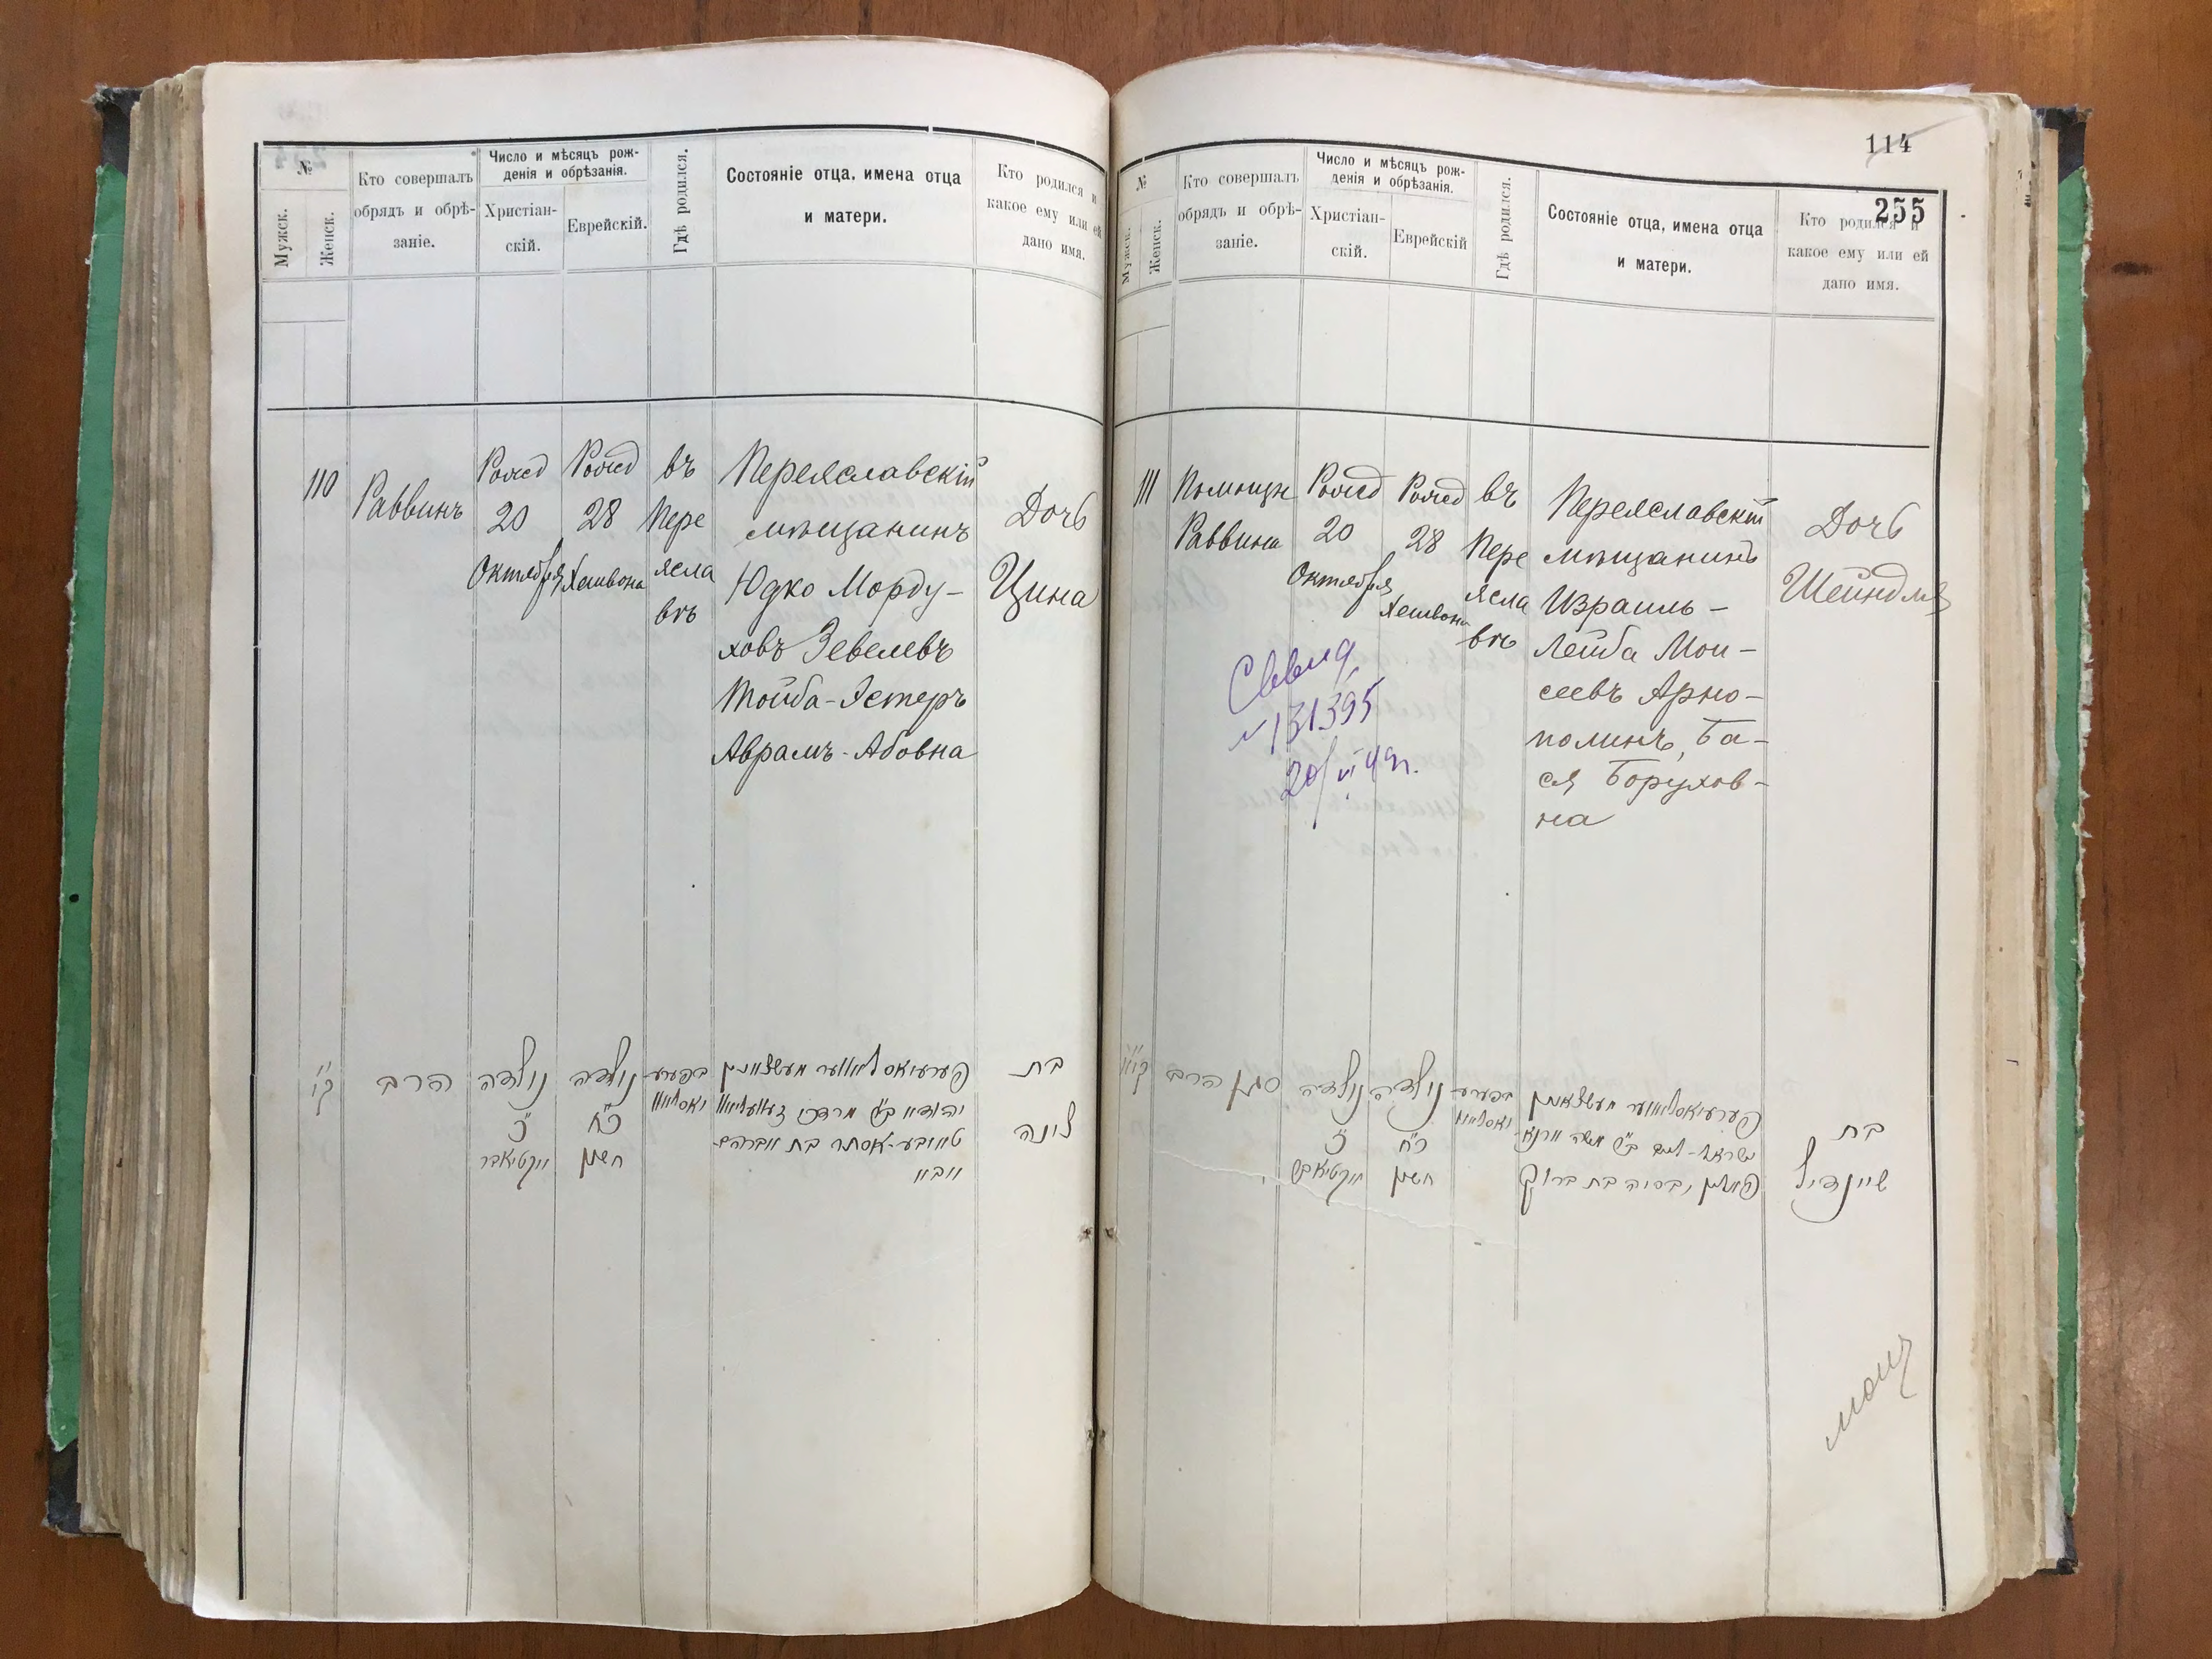 №
Мужск.
Женск.
Кто совершалъ
обрядъ и обрѣ-
заніе.
Число и мѣсяцъ рож-
денія и обрѣзанія.
Христіан-
скій.
Еврейскій.
Гдѣ родился.
Состояніе отца, имена отца
и матери.
Кто родился и
какое ему или ей
дано имя.
110
Раввинъ
Рожд
20
Октября
Рожд
28
Хешвона
въ
Пере
ясла
вѣ
Переяславскій
мѣщанинъ
Юдко Морду-
ховъ Зевелевъ
Тойба-Эстеръ
Аврамъ-Абовна
Дочь
Цина
ק״י
הרב
נולדה
כ׳
נולדה
כ״ח
חשון
בת
צינה
114
255
№
Мужск.
Женск.
Кто совершалъ
обрядъ и обрѣ-
заніе.
Число и мѣсяцъ рож-
денія и обрѣзанія.
Христіан-
скій.
Еврейскій
Гдѣ родился.
Состояніе отца, имена отца
и матери.
Кто родился и
какое ему или ей
дано имя.
111
Помощн
Раввина
Рожд
20
Октября
Рожд
28
Хешвона
въ
Пере
ясла
вѣ
Переяславскій
мѣщанинъ
Израиль-
Лейба Мои-
сеевъ Арно-
полинъ, Ба-
ся Борухов-
на
Дочь
Шейндля
№131395
קי״א
סגן הרב
נולדה
כ׳
נולדה
כ״ח
חשון
בת
שיינדיל